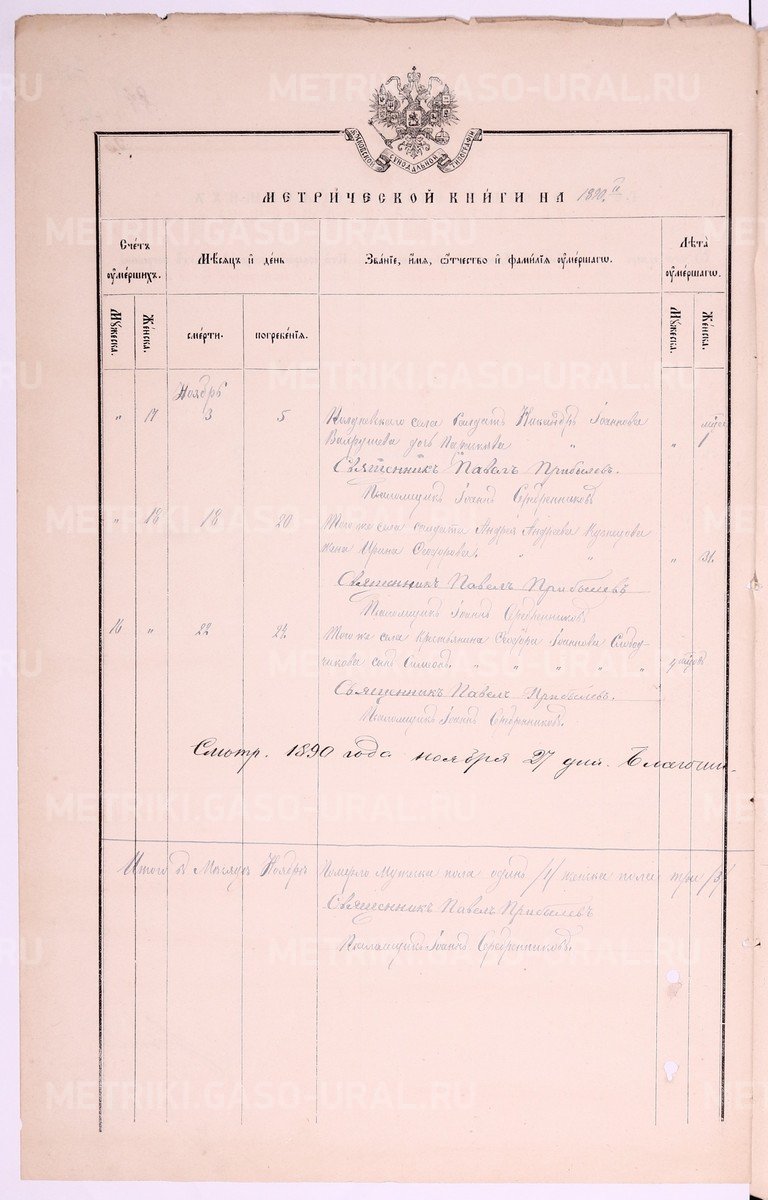 МОСКОВСКОЙ СѴНОДАЛЬНОЙ ТИПОГРАФІИ
МЕТРИ́ЧЕСКОЙ КНИ́ГИ НА 1890
Сче́тъ ᲂу҆ме́ршихъ.
Мѣ́сяцъ и҆ де́нь
Зва́нїе, и҆́мя, ѻ҆́тчество и҆ фами́лїя ᲂу҆ме́ршагѡ.
Лѣ́та ᲂу҆ме́ршагѡ.
Му́жеска.
Же́нска.
сме́рти.
погребе́нїя.
Му́жеска.
Же́нска.
Ноябрь
" 17 3 5 села солдата Никандра Іоаннова
дочь " " 1
Священникъ Павелъ Прибылевъ.
Псаломщикъ Іоаннъ Серебренниковъ
" 18 18 20 Того же села солдата Андрея Андреева Кузнецова
жена Ирина Ѳеодорова. " " " 31.
Священникъ Павелъ Прибылевъ
Псаломщикъ Іоаннъ Серебренниковъ
16 " 22 24 Того же села крестьянина Ѳеодора Іоаннова Слобод-
чикова сынъ Симеонъ. " " " " "
Священникъ Павелъ Прибылевъ.
Псаломщикъ Іоаннъ Серебренниковъ.
Смотр. 1890 года ноября 27 дня. Благочин.
Итого въ Мѣсяцѣ Ноябрѣ Померло мужеска пола одинъ /1/ женска пола три /3/
Священникъ Павелъ Прибылевъ
Псаломщикъ Іоаннъ Серебренниковъ.
METRIKI.GASO-URAL.RU